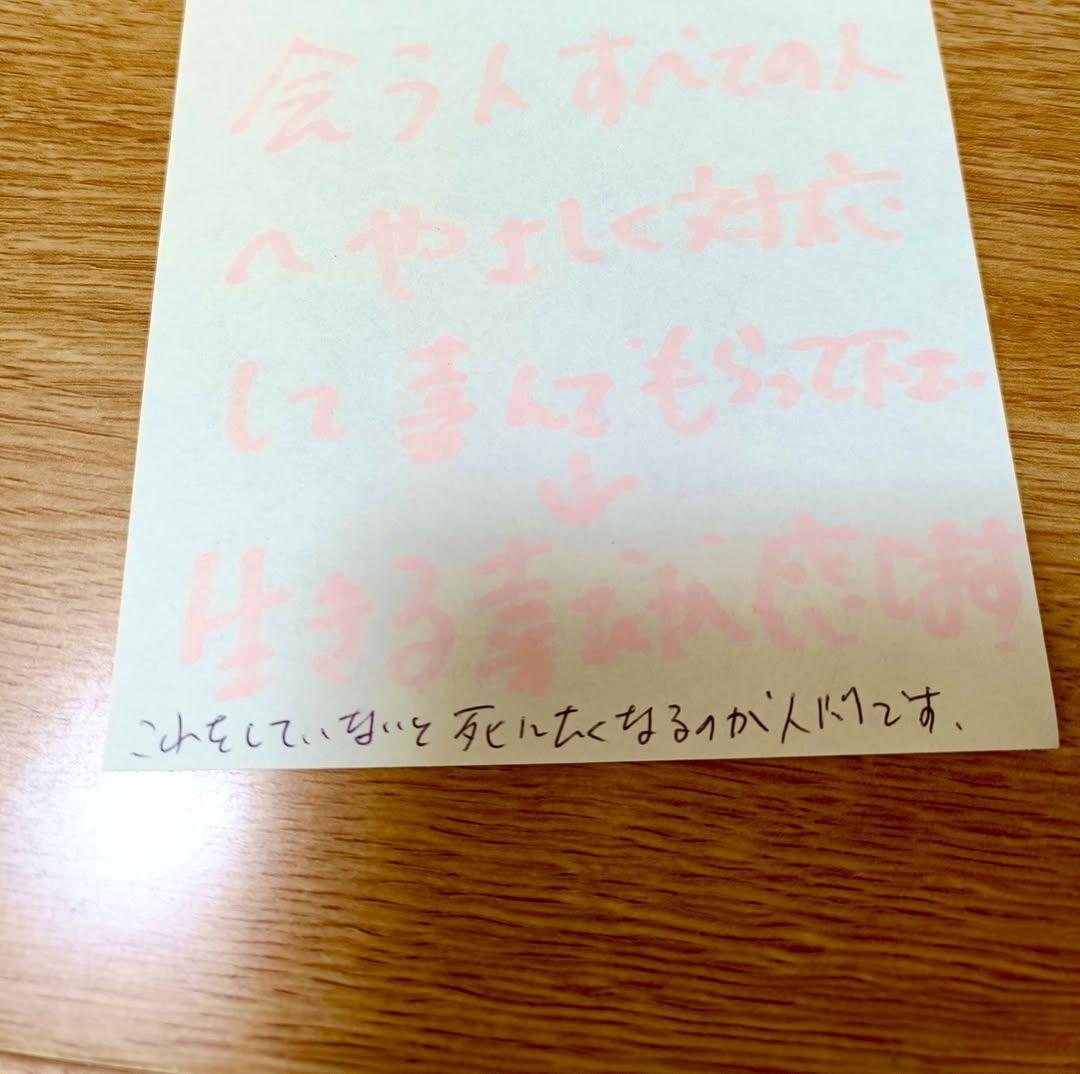 会う人すべての人
へやさしく対応
して喜んでもらって下さい
↓
生きる喜びが応じます
これをしていないと死にたくなるのが人間です。